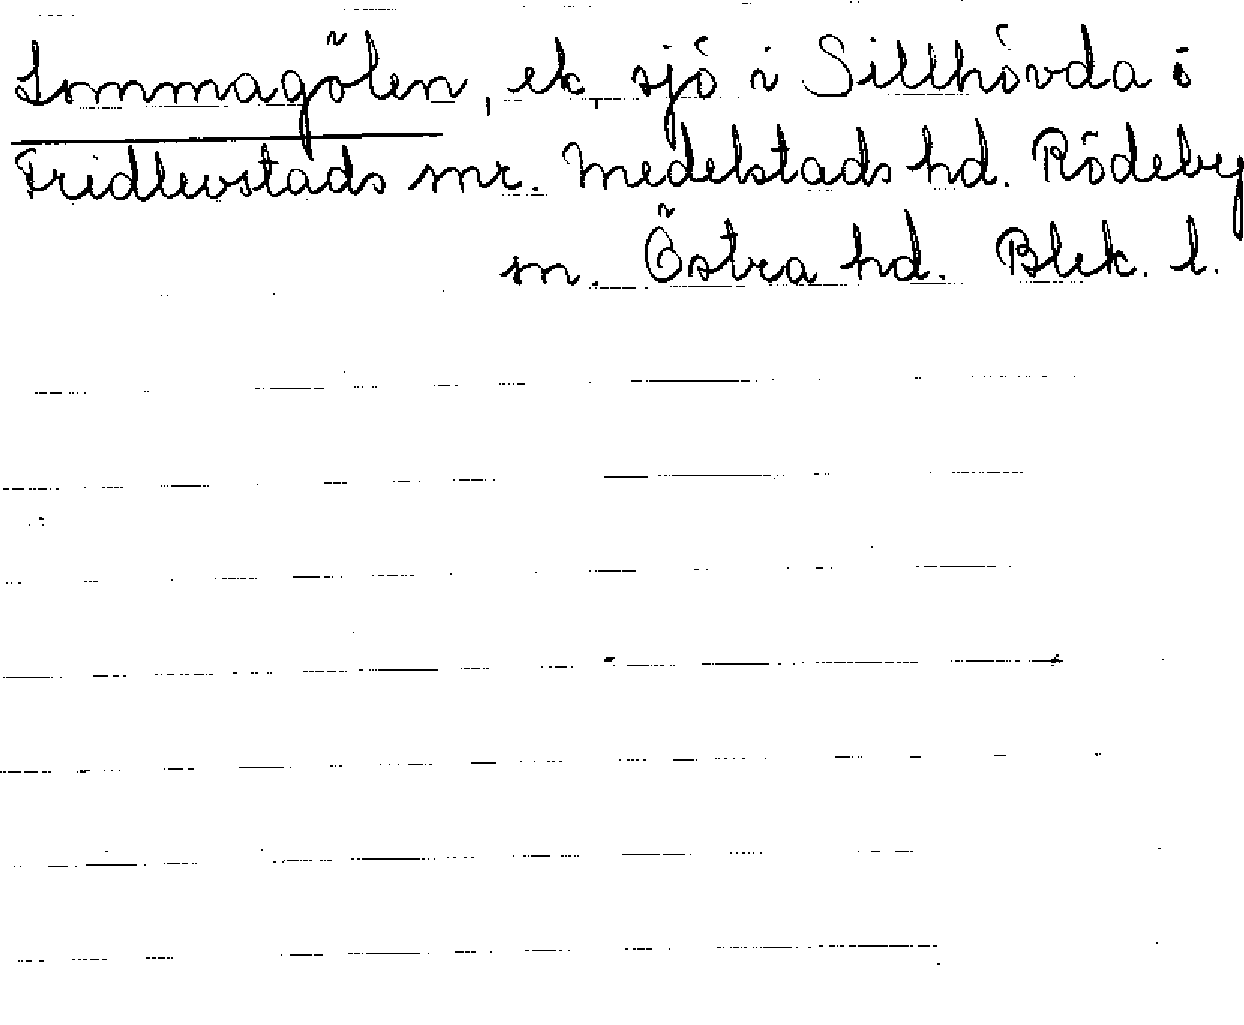 Lommagölen, ek. sjö i Sillhövda i
Fridlevstads snr. Medelstads hd. Rödeby
sn. Östra hd. Blek. l.